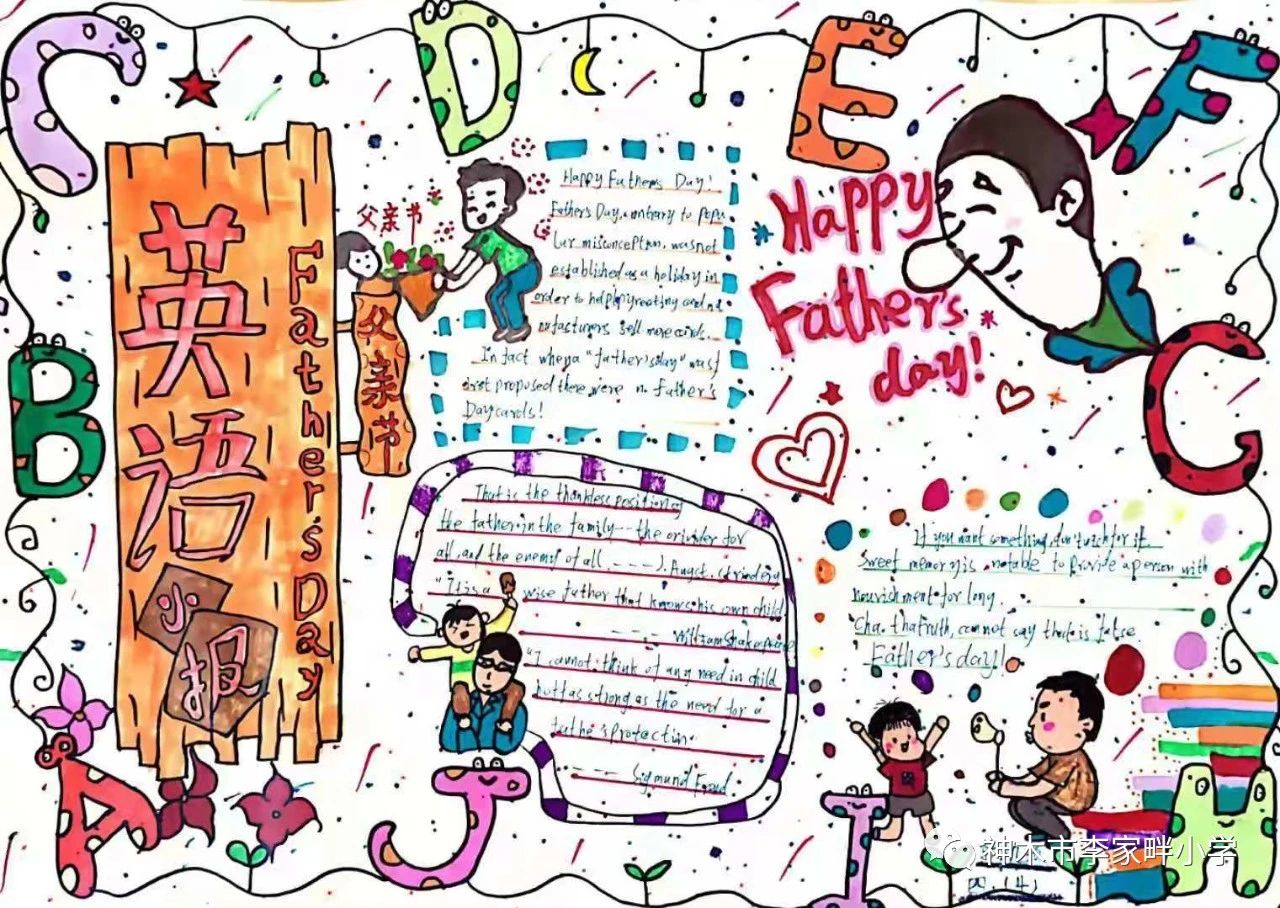 C
D
E
F
B
A
J
I
H
C
英语
小报
Fathers Day
父亲节
父亲节
Happy Fathers Day!
Father's Day, contrary to popu
lar misconception, was not
established as a holiday in
order to help greeting card
sell more cards.
In fact when a "father's day" was f
irst proposed there were n Father's
Day cards!
Happy
Father's
day!
That is the thankless position of
the father in the family---the for
all, and the enemy of all ---J. August. Strindberg
"It is a wise father that knows his own child
---- William
"I cannot think of any need in child
as strong as the need for a
Protection.
---- Sigmund
If you want something, don't for it.
Sweet memory is notable to Provide a person with
nourishment for long.
Cha. cannot say that is false.
Father's day!
四·(4)
神木市李家畔小学